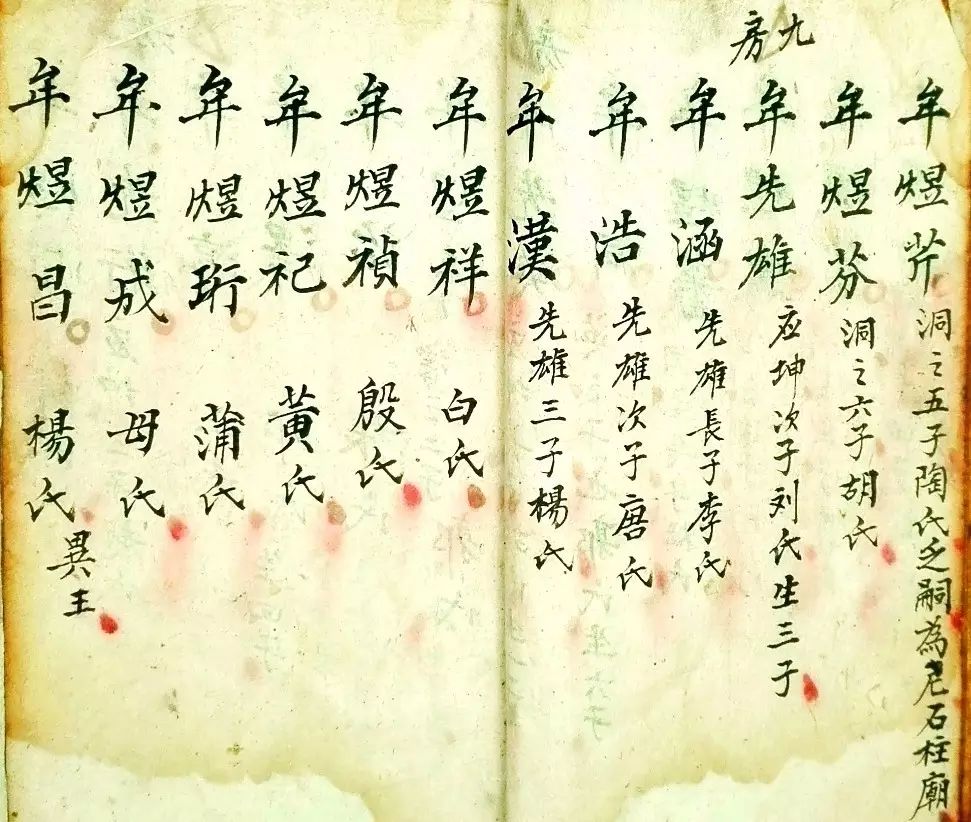 牟煜芹洞之五子陶氏乏嗣為尼石柱廟
牟煜芬洞之六子胡氏
九房
牟先雄应坤次子刘氏生三子
牟涵先雄長子李氏
牟浩先雄次子唐氏
牟漢先雄三子楊氏
牟煜祥白氏
牟煜禎殷氏
牟煜祀黃氏
牟煜珩蒲氏
牟煜成母氏
牟煜昌楊氏異王